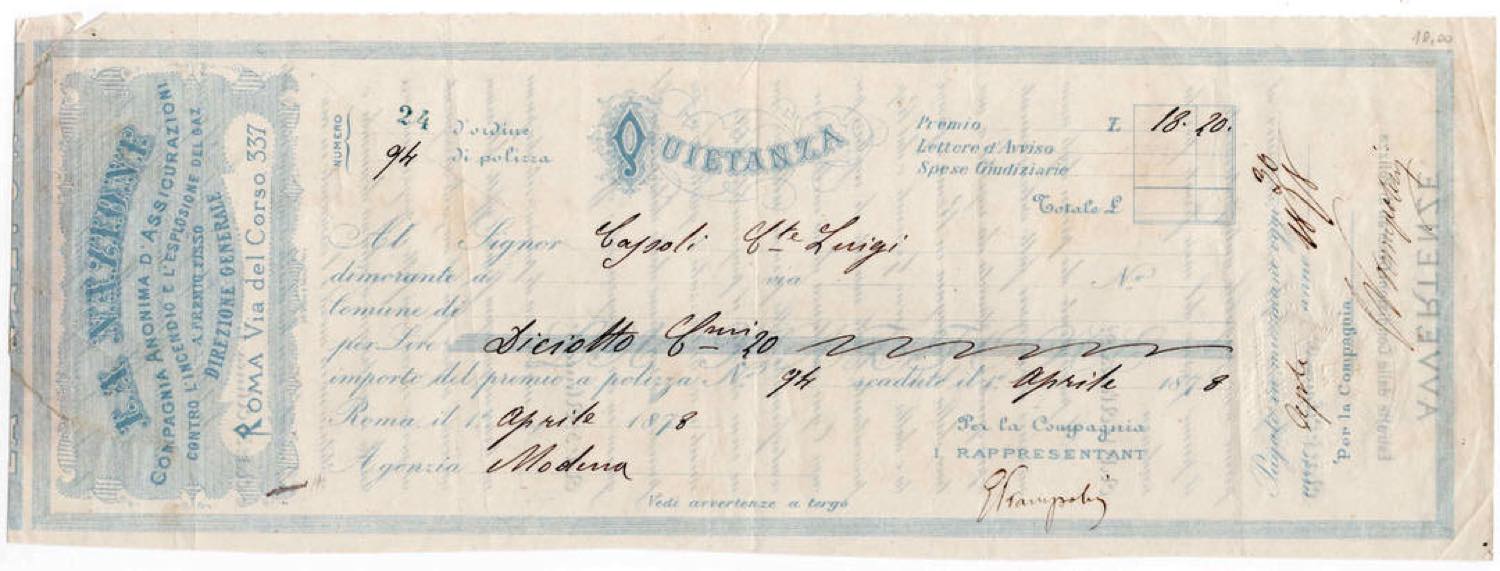 LA NAZIONE
COMPAGNIA ANONIMA D'ASSICURAZIONI
CONTRO L'INCENDIO E L'ESPLOSIONE DEL GAZ
A PREMIO FISSO
DIREZIONE GENERALE
ROMA Via del Corso 337
NUMERO
24 d'ordine
94 di polizza
QUIETANZA
Premio £ 18.20.
Lettere d'Avviso
Spese Giudiziarie
Totale £
Al Signor Capoli Cte Luigi
dimorante a via No
Comune di
per Lire Diciotto Cmi 20
importo del premio a polizza No 94 scaduto il 1o Aprile 1878
Roma il 1o Aprile 1878
Agenzia Modena
Per la Compagnia
I. RAPPRESENTANT
Vedi avvertenze a tergo
Pagato in mia mano oggi 30
Aprile anno 1878
Per la Compagnia
AVVERTENZE
18,00